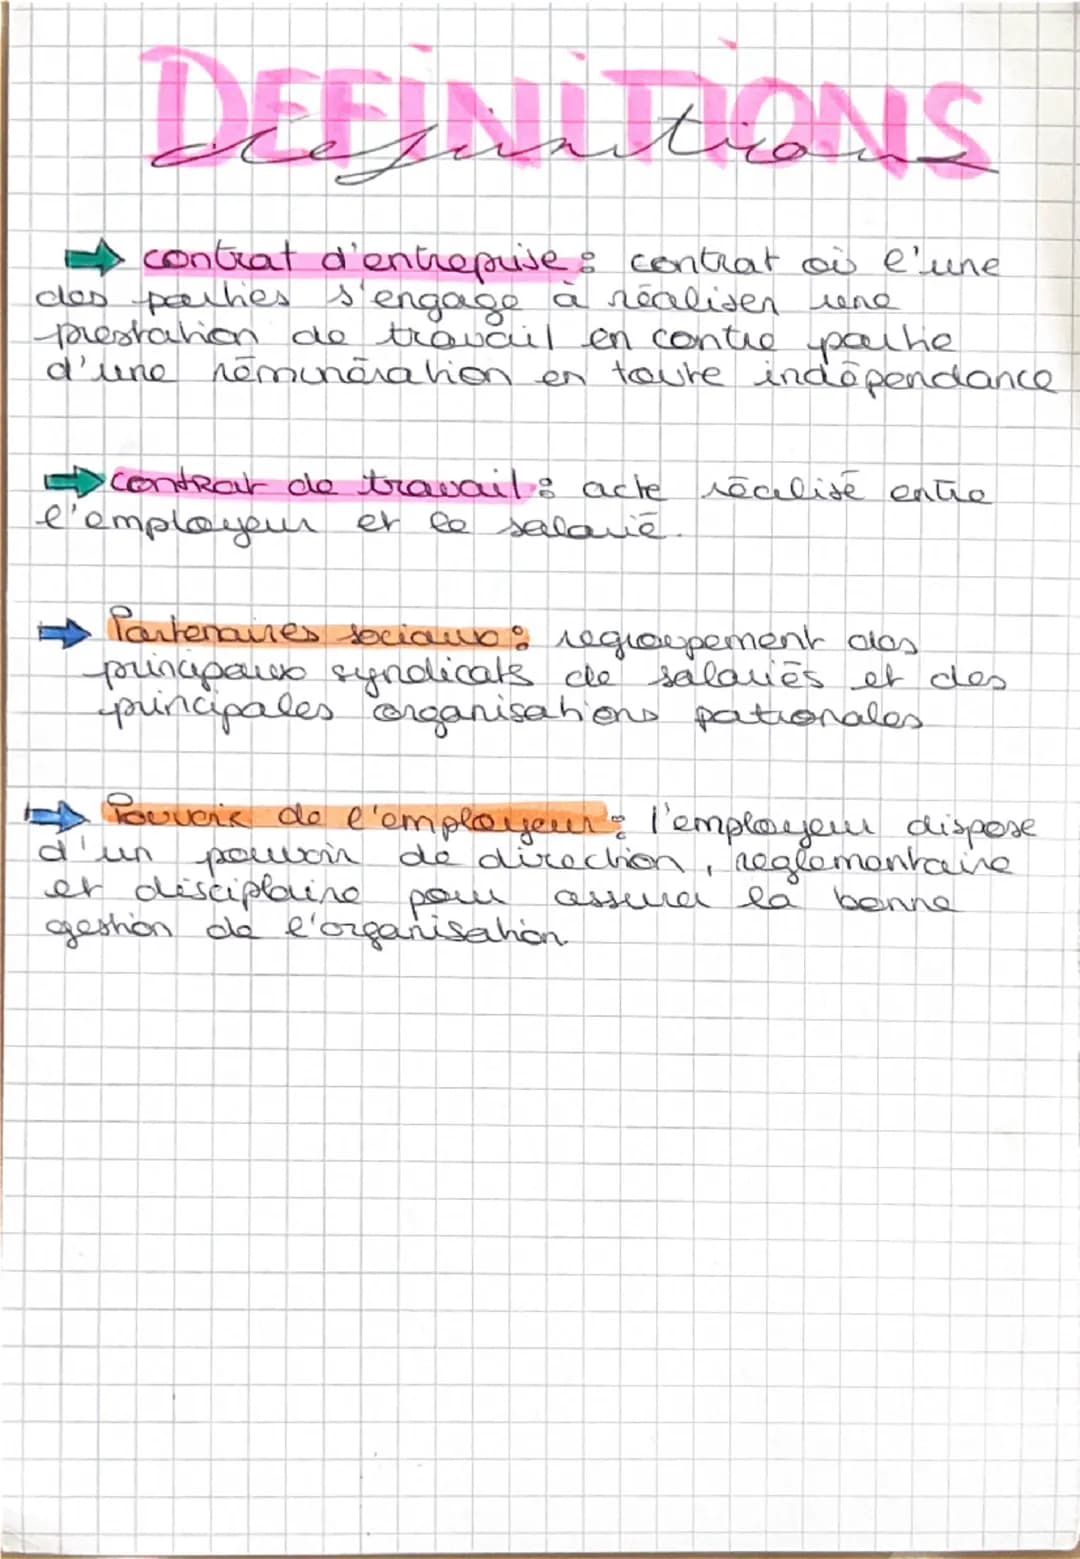 DEFINITIONS
definitions
contrat d'entreprise : contrat où l'une
des parties s'engage à réaliser une
prestation de travail en contre partie
d'une rémunération en toute indépendance
contrat de travail : acte réalisé entre
l'employeur et le salarié.
Partenaires sociaux : regroupement des
principaux syndicats de salariés et des
principales organisations patronales
Pouvoir de l'employeur : l'employeur dispose
d'un pouvoir de direction, reglementaire
et disciplaire pour assurer la bonne
gestion de l'organisation.